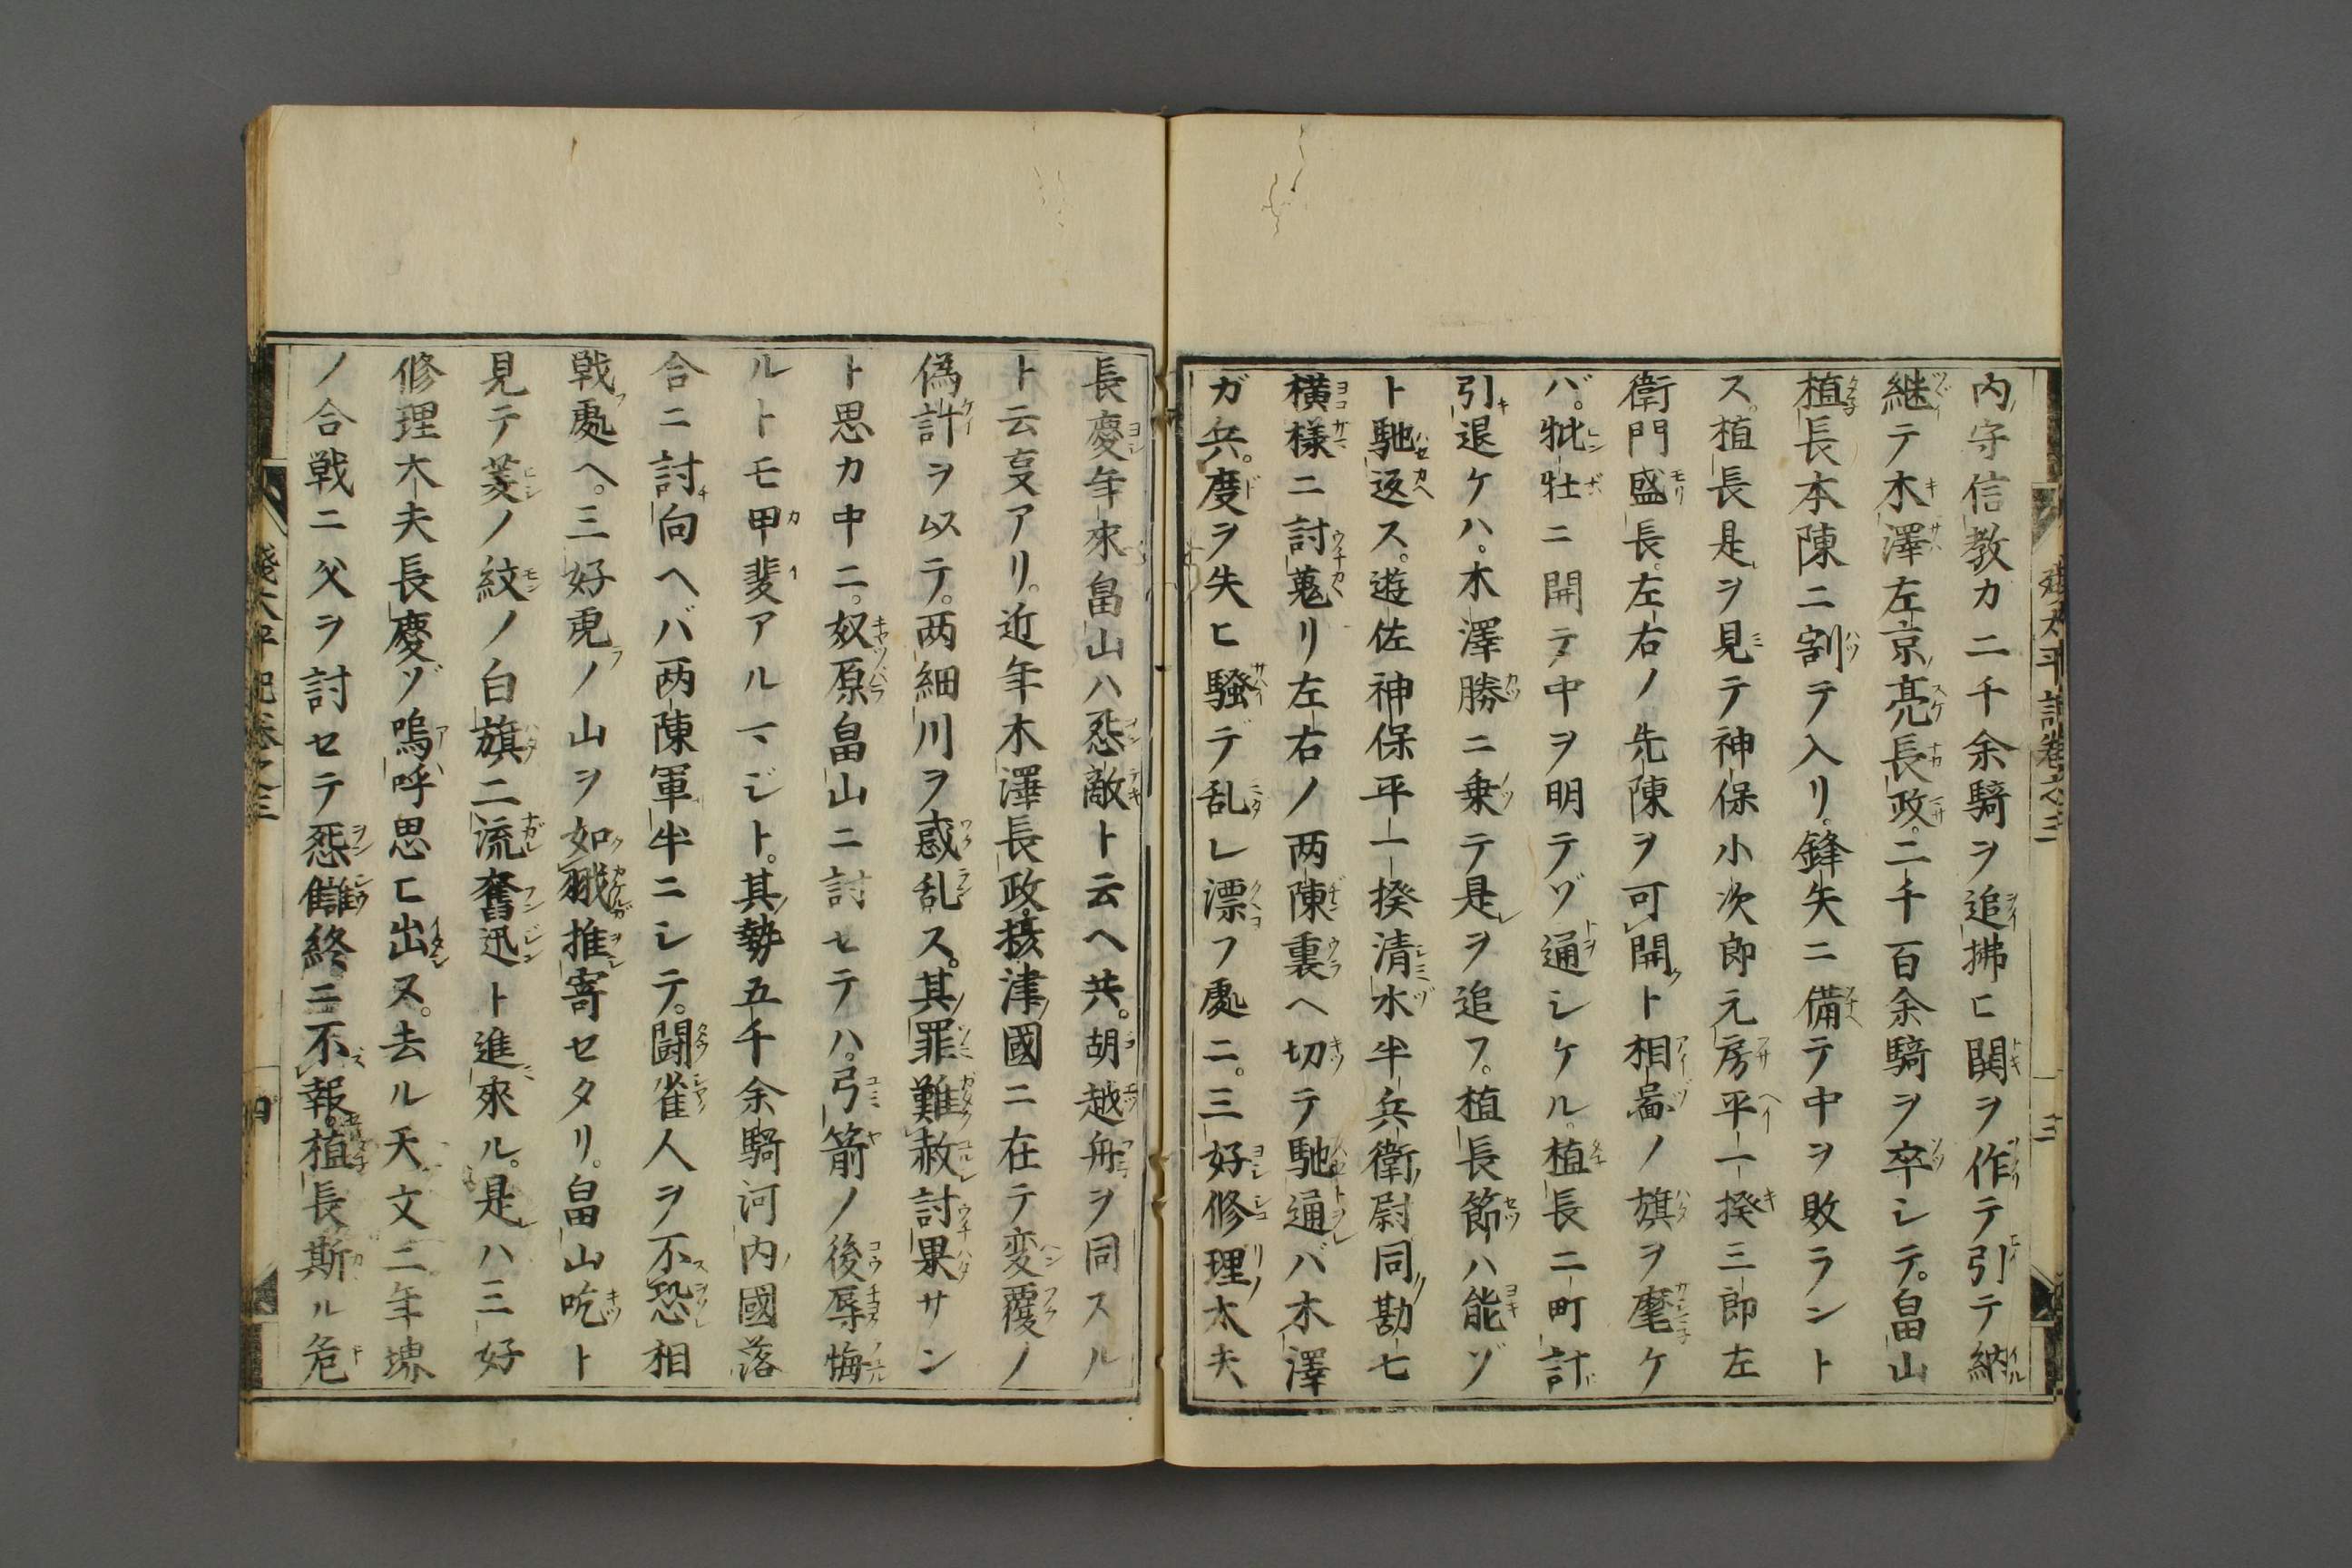 内守信教カ二千余騎ヲ追拂ヒ鬨ヲ作テ引テ納
継テ木澤左京亮長政。二千百余騎ヲ卒シテ。畠山
植長本陳ニ割テ入リ。鋒矢ニ備テ中ヲ敗ラント
ス。植長是ヲ見テ神保小次郎元房平一揆三郎左
衛門盛長。左右ノ先陳ヲ可開ト相啚ノ旗ヲ麾ケ
バ。牝牡ニ開テ中ヲ明テゾ通シケル。植長二町計
引退ケハ。木澤勝ニ乗テ是ヲ追フ。植長節ハ能ゾ
ト馳返ス。遊佐神保平一揆清水半兵衛尉同勘七
横様ニ討蒐リ左右ノ両陳裏ヘ切テ馳通バ木澤
ガ兵。度ヲ失ヒ騒デ乱レ漂フ處ニ。三好修理太夫
長慶年來畠山ハ㤪敵ト云ヘ共。胡越舟ヲ同スル
ト云叓アリ。近年木澤長政。摂津國ニ在テ変覆ノ
偽計ヲ以テ。两細川ヲ惑乱ス。其罪難赦討果サン
ト思カ中ニ。奴原畠山ニ討セテハ。弓箭ノ後辱悔
ルトモ甲斐アルマジト。其勢五千余騎河内國落
合ニ討向ヘバ两陳軍半ニシテ。闘雀人ヲ不恐相
戦處ヘ。三好乕ノ山ヲ如翔推寄セタリ。畠山吃ト
見テ菱ノ紋ノ白旗二流奮迅ト進來ル。是ハ三好
修理大夫長慶ゾ嗚呼思ヒ出ス。去ル天文二年堺
ノ合戦ニ父ヲ討セテ㤪讎終ニ不報。植長斯ル危
續太平記巻之三
三
四